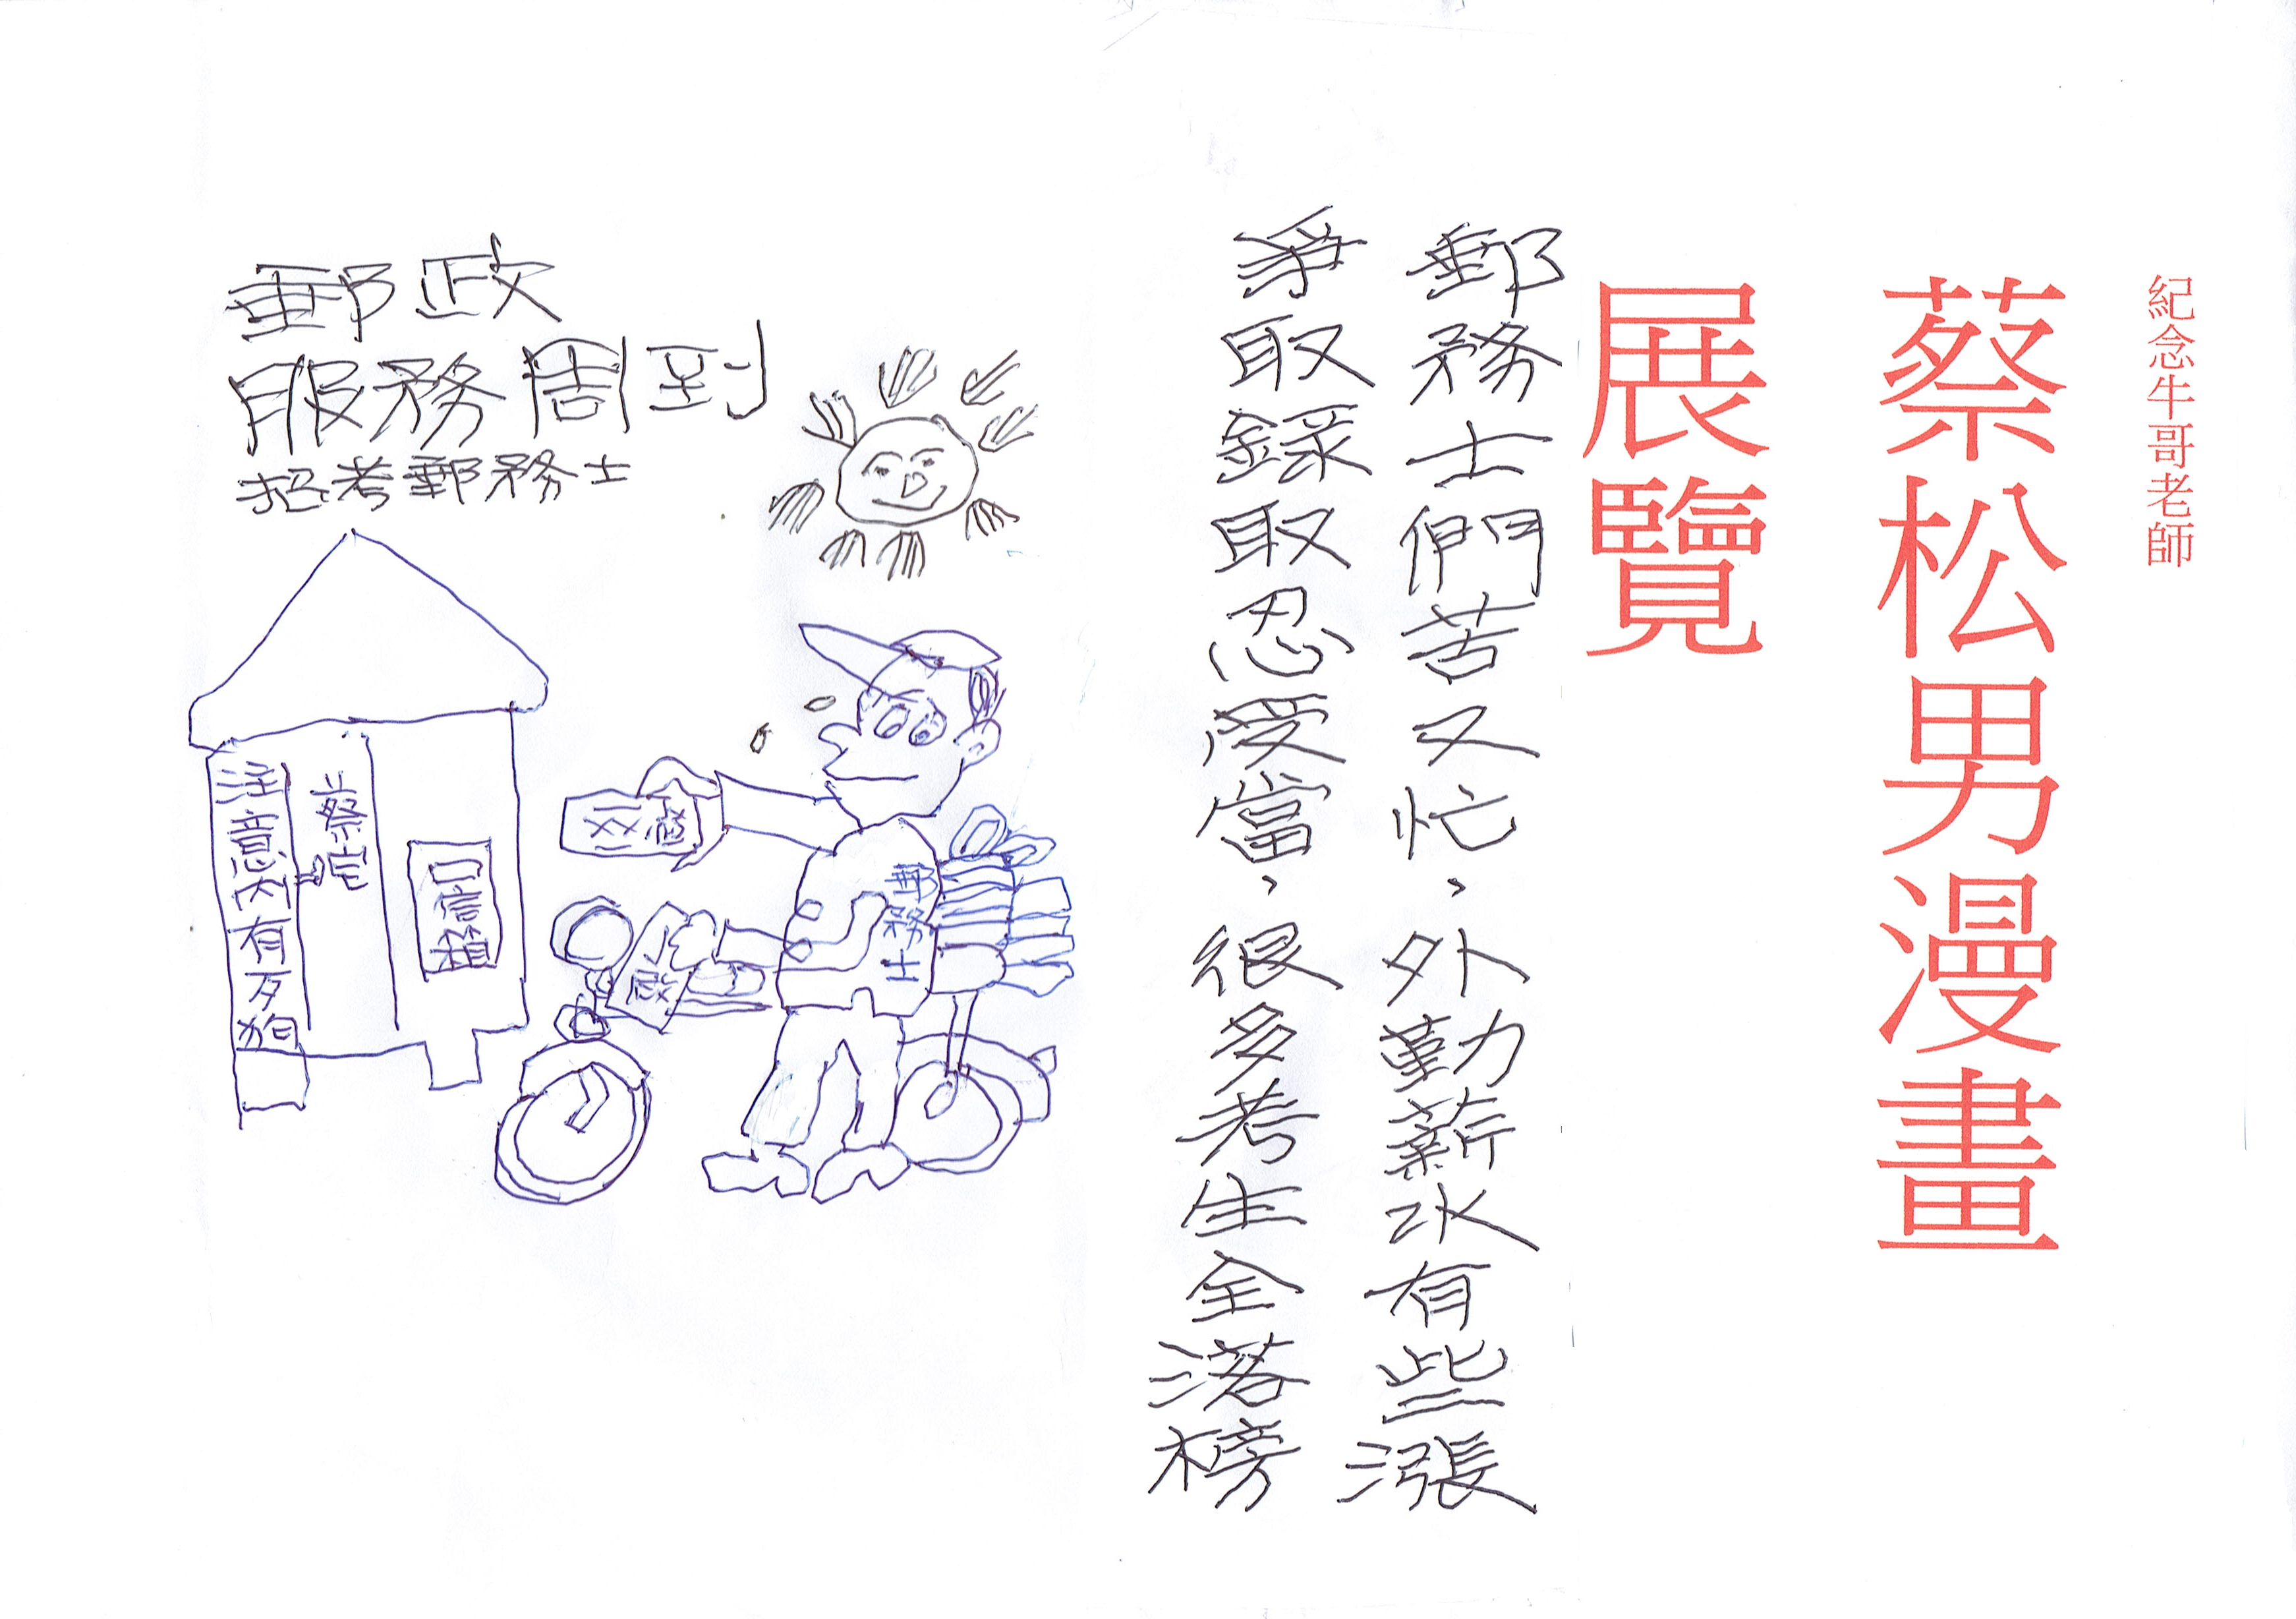 紀念牛哥老師
蔡松男漫畫
展覽
郵務士們苦又忙，外勤薪水有些漲
爭取錄取忍受當，很多考生全落榜
郵政
服務周到
招考郵務士
郵務士
信箱
蔡宅
注意內有歹狗